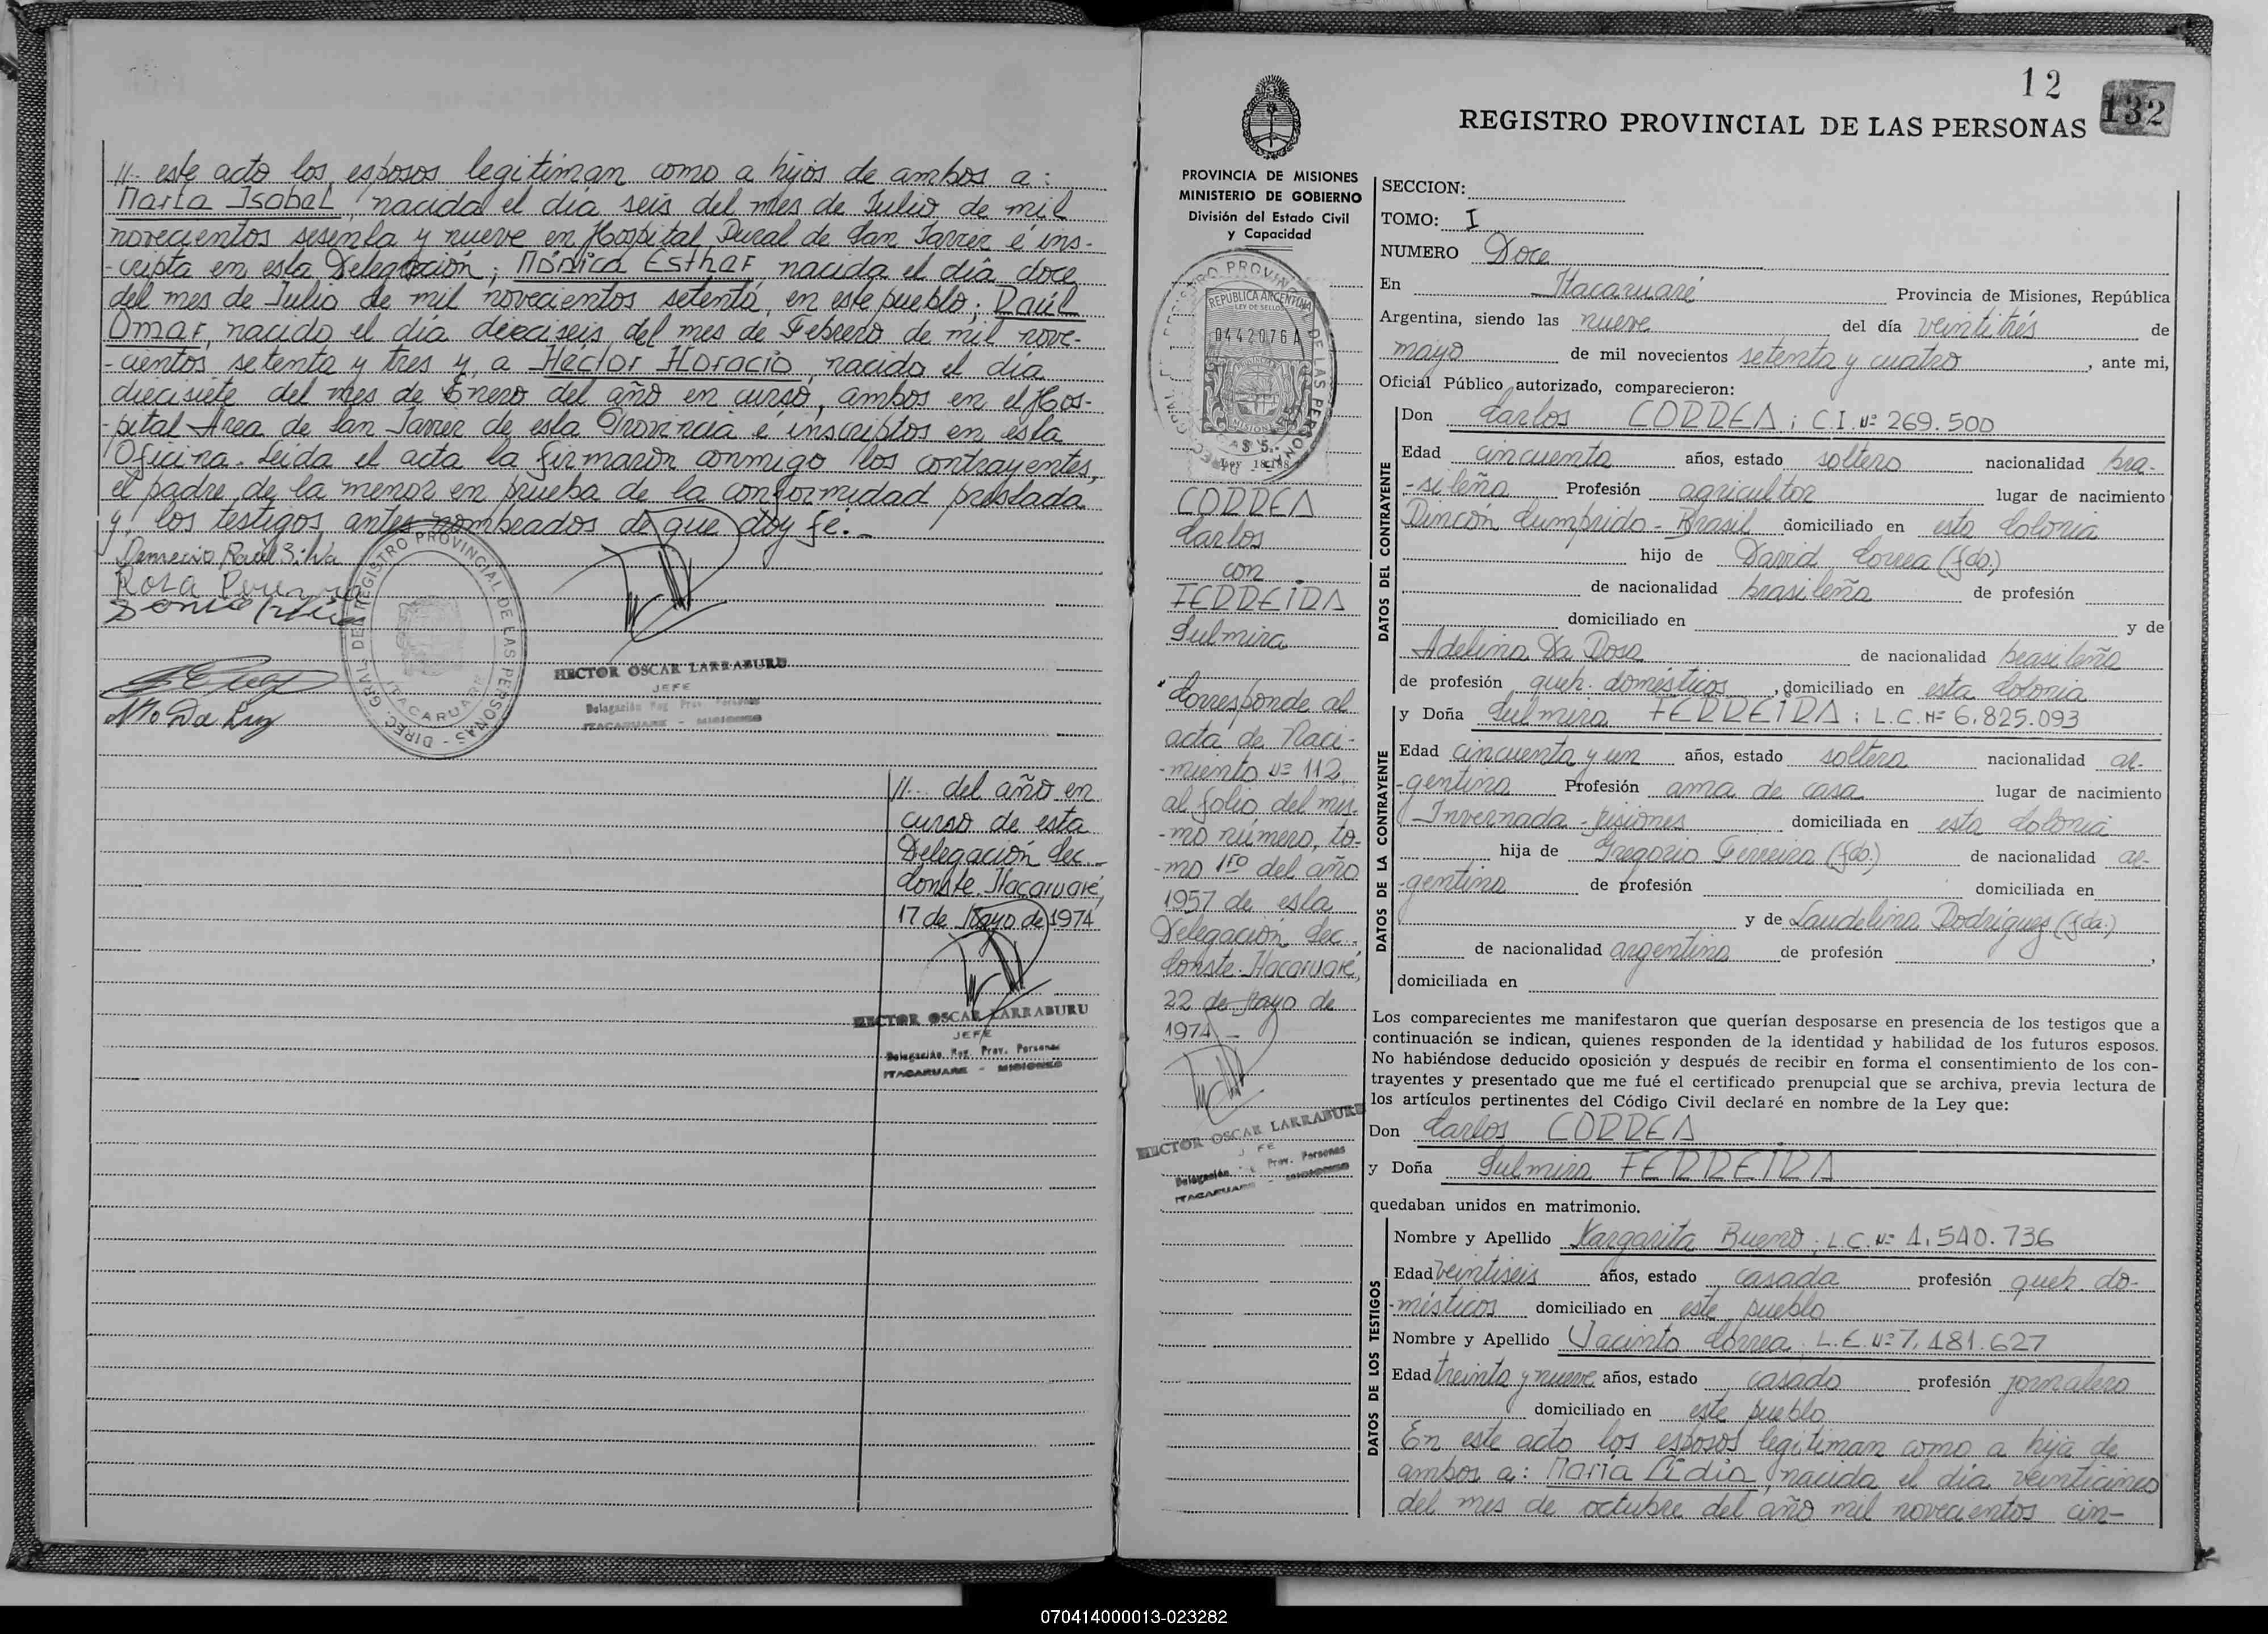 //.. este acto los esposos legitiman como a hijos de ambos a:
María Isabel, nacida el día seis del mes de Julio de mil
novecientos sesenta y nueve en Hospital Rural de San Javier é ins-
-cripta en esta Delegación; Mónica Esther, nacida el día doce
del mes de Julio de mil novecientos setenta, en este pueblo; Raúl
Omar, nacido el día dieciseis del mes de Febrero de mil nove-
-cientos setenta y tres y, a Héctor Horacio, nacido el día
diecisiete del mes de Enero del año en curso, ambos en el Hos-
-pital Area de San Javier de esta Provincia é inscriptos en esta
Oficina. Leida el acta la firmaron conmigo los contrayentes,
el padre de la menor en prueba de la conformidad prestada
y los testigos antes nombrados de que doy fé.-
Raúl Silva
Rosa
DIREC. GRAL. DEL REGISTRO PROVINCIAL DE LAS PERSONAS
ITACARUARE
HECTOR OSCAR LARRABURU
JEFE
Delegación Reg. Prov. Personas
ITACARUARE - MISIONES
Da Luz
//... del año en
curso de esta
Delegación Sec.-
Conste. Itacaruaré,
17 de Mayo de 1974
HECTOR OSCAR LARRABURU
JEFE
Delegación Reg. Prov. Personas
ITACARUARE - MISIONES
12
132
REGISTRO PROVINCIAL DE LAS PERSONAS
PROVINCIA DE MISIONES
MINISTERIO DE GOBIERNO
División del Estado Civil
y Capacidad
REPUBLICA ARGENTINA
LEY DE SELLOS
0442076 A
MISIONES
$ 5.-
CORREA
Carlos
con
FERREIRA
Sulmira
Corresponde al
acta de Naci-
-miento Nº 112,
al folio del mis-
-mo número, to-
-mo 1ro del año
1957 de esta
Delegación Sec.
Conste. Itacaruaré,
22 de Mayo de
1974.-
HECTOR OSCAR LARRABURU
JEFE
Delegación Reg. Prov. Personas
ITACARUARE - MISIONES
SECCION:
TOMO: I
NUMERO Doce
En Itacaruaré Provincia de Misiones, República
Argentina, siendo las nueve del día veintitrés de
mayo de mil novecientos setenta y cuatro, ante mi,
Oficial Público autorizado, comparecieron:
DATOS DEL CONTRAYENTE
Don Carlos CORREA; C.I. Nº 269.500
Edad cincuenta años, estado soltero nacionalidad bra-
-sileña Profesión agricultor lugar de nacimiento
Rincón Cumprido - Brasil domiciliado en esta Colonia
hijo de David Correa (fdo.)
de nacionalidad brasileña de profesión
domiciliado en y de
Adelina Da Rosa de nacionalidad brasileña
de profesión queh. domésticos, domiciliado en esta Colonia
DATOS DE LA CONTRAYENTE
y Doña Sulmira FERREIRA; L.C. Nº 6.825.093
Edad cincuenta y un años, estado soltera nacionalidad ar-
-gentina Profesión ama de casa lugar de nacimiento
Invernada - Misiones domiciliada en esta Colonia
hija de Gregorio Ferreira (fdo.) de nacionalidad ar-
-gentina de profesión domiciliada en
y de Laudelina Rodríguez (fda.)
de nacionalidad argentina de profesión ,
domiciliada en
Los comparecientes me manifestaron que querían desposarse en presencia de los testigos que a
continuación se indican, quienes responden de la identidad y habilidad de los futuros esposos.
No habiéndose deducido oposición y después de recibir en forma el consentimiento de los con-
trayentes y presentado que me fué el certificado prenupcial que se archiva, previa lectura de
los artículos pertinentes del Código Civil declaré en nombre de la Ley que:
Don Carlos CORREA
y Doña Sulmira FERREIRA
quedaban unidos en matrimonio.
DATOS DE LOS TESTIGOS
Nombre y Apellido Margarita Bueno; L.C. Nº 1.540.736
Edad veintiseis años, estado casada profesión queh. do-
-mésticos domiciliado en este pueblo
Nombre y Apellido Jacinto Correa; L.E. Nº 7.481.627
Edad treinta y nueve años, estado casado profesión jornalero
domiciliado en este pueblo
En este acto los esposos legitiman como a hija de
ambos a: María Lidia, nacida el día veinticinco
del mes de octubre del año mil novecientos cin-
070414000013-023282